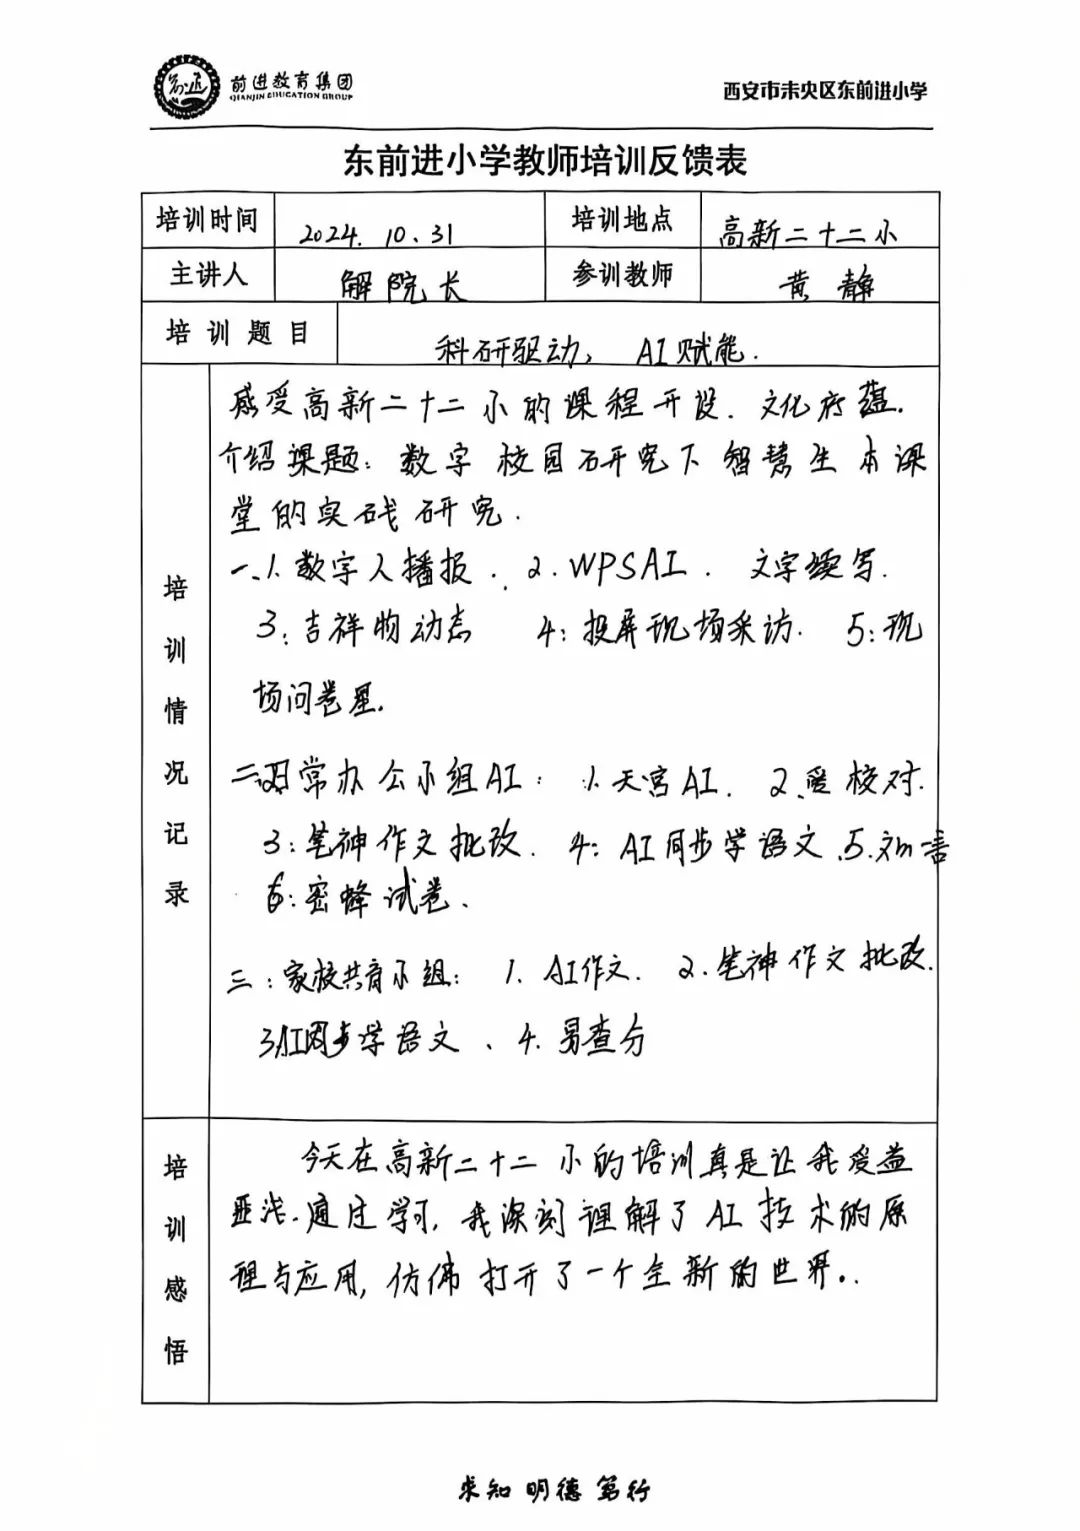 前进教育集团
QIANJIN EDUCATION GROUP
西安市未央区东前进小学
东前进小学教师培训反馈表
培训时间 2024.10.31 培训地点 高新二十二小
主讲人 解院长 参训教师 黄静
培训题目 科研驱动，AI赋能.
培训情况记录
感受高新二十二小的课程开设.文化底蕴.
介绍课题：数字校园研究下智慧生本课
堂的实践研究.
一、1.数字人播报.2.WPSAI.文字续写.
3：吉祥物动态 4：投屏现场采访.5：现
场问卷星.
二：日常办公小组AI：1.天宫AI.2、爱校对.
3：笔神作文批改.4：AI同步学语文.5.文心一言
6：密蜂试卷、
三：家校共育小组：1.AI作文.2.笔神作文批改.
3AI同步学语文、4.易查分
培训感悟
今天在高新二十二小的培训真是让我受益
匪浅.通过学习,我深刻理解了AI技术的原
理与应用,仿佛打开了一个全新的世界..
求知 明德 笃行